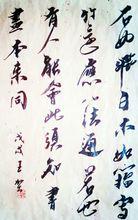 石如飛白木如籀寫
竹還應八法通若也
有人能會此須知書
畫本來同 戊戌王